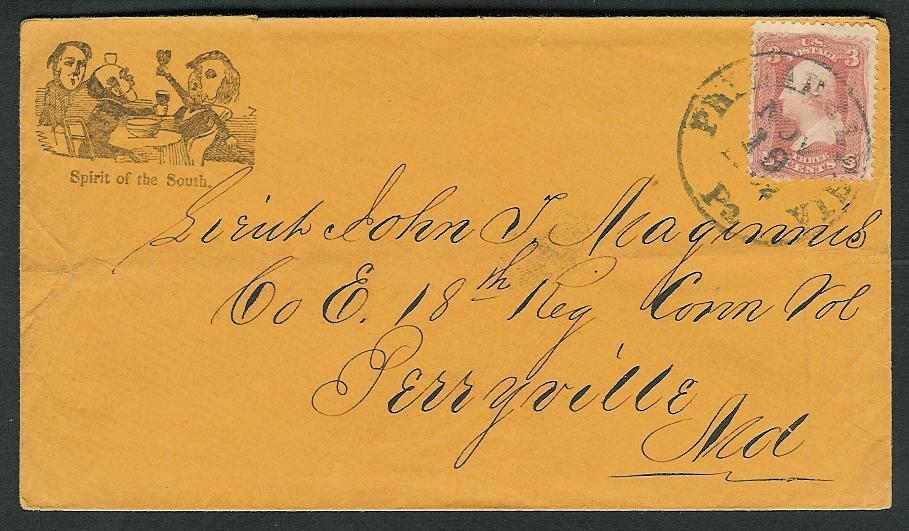 Spirit of the South.
U.S. POSTAGE
3 3
THREE CENTS
3
PHILADELPHIA
NOV
19
Pa
Lieut John T Maginnis
Co E. 18th Reg Conn Vol
Perryville
Md